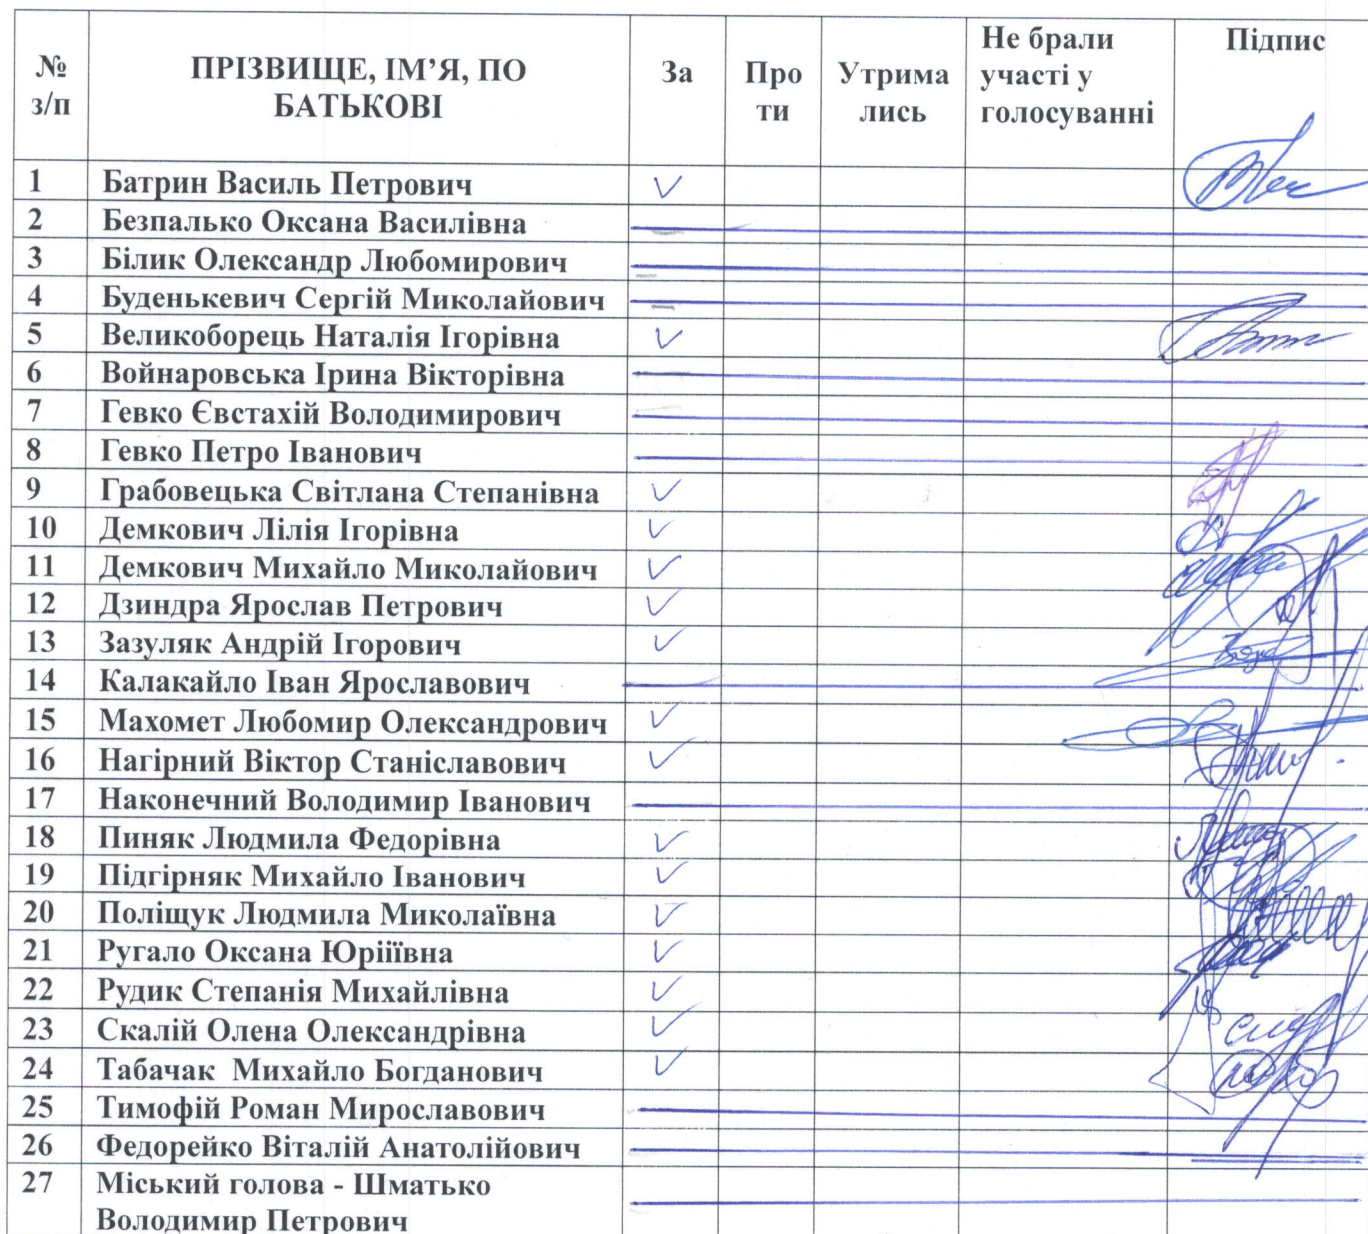 № з/п ПРІЗВИЩЕ, ІМ’Я, ПО БАТЬКОВІ За Про ти Утрима лись Не брали участі у голосуванні Підпис
1 Батрин Василь Петрович ✓
2 Безпалько Оксана Василівна
3 Білик Олександр Любомирович
4 Буденькевич Сергій Миколайович
5 Великоборець Наталія Ігорівна ✓
6 Войнаровська Ірина Вікторівна
7 Гевко Євстахій Володимирович
8 Гевко Петро Іванович
9 Грабовецька Світлана Степанівна ✓
10 Демкович Лілія Ігорівна ✓
11 Демкович Михайло Миколайович ✓
12 Дзиндра Ярослав Петрович ✓
13 Зазуляк Андрій Ігорович ✓
14 Калакайло Іван Ярославович
15 Махомет Любомир Олександрович ✓
16 Нагірний Віктор Станіславович ✓
17 Наконечний Володимир Іванович
18 Пиняк Людмила Федорівна ✓
19 Підгірняк Михайло Іванович ✓
20 Поліщук Людмила Миколаївна ✓
21 Ругало Оксана Юріїївна ✓
22 Рудик Степанія Михайлівна ✓
23 Скалій Олена Олександрівна ✓
24 Табачак Михайло Богданович ✓
25 Тимофій Роман Мирославович
26 Федорейко Віталій Анатолійович
27 Міський голова - Шматько
Володимир Петрович